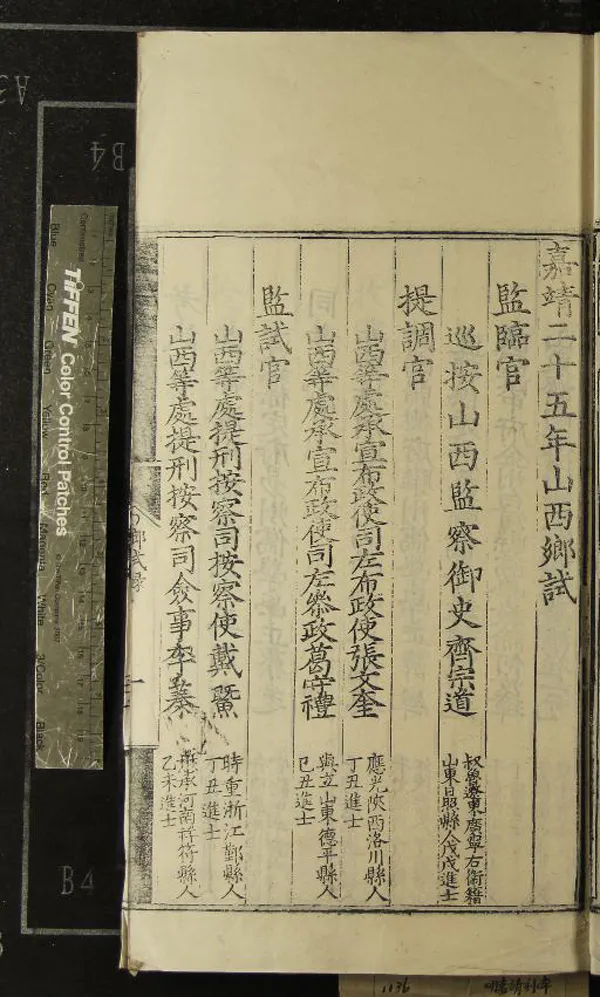 嘉靖二十五年山西鄉試
監臨官
巡按山西監察御史齊宗道
叔魯遼東廣寧右衛籍
山東日照縣人戊戌進士
提調官
山西等處承宣布政使司左布政使張文奎
應光陝西洛川縣人
丁丑進士
山西等處承宣布政使司左參政葛守禮
與立山東德平縣人
己丑進士
監試官
山西等處提刑按察司按察使戴鱀
時重浙江鄞縣人
丁丑進士
山西等處提刑按察司僉事李蓁
承河南祥符縣人
乙未進士
鄉試錄
一
TIFFEN Color Control Patches
Blue
Green
Yellow
Red
Magenta
White
3/Color
Black
B4
B4
A3
1136